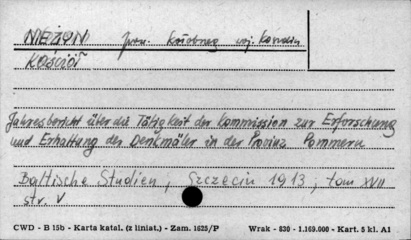 NIEŻYN pow. Kołobrzeg woj. Koszalin
KOŚCIÓŁ
Jahresbericht über die Tätigkeit der Kommission zur Erforschung
und Erhaltung der Denkmäler in der Provinz Pommern
Baltische Studien, Szczecin 1913, tom XVII
str. V
CWD - B 15b - Karta katal. (z liniat.) - Zam. 1625/P Wrak - 830 - 1.169.000 - Kart. 5 kl. A1